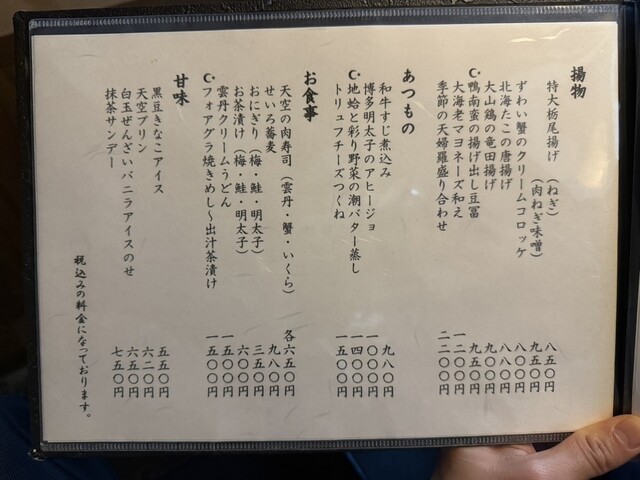 揚物
特大栃尾揚げ（ねぎ） 八五〇円
（肉ねぎ味噌） 九五〇円
ずわい蟹のクリームコロッケ 八〇〇円
北海たこの唐揚げ 八八〇円
大山鶏の竜田揚げ 九〇〇円
鴨南蛮の揚げ出し豆冨 九五〇円
大海老マヨネーズ和え 一二〇〇円
季節の天婦羅盛り合わせ 二二〇〇円
あつもの
和牛すじ煮込み 九八〇円
博多明太子のアヒージョ 一〇〇〇円
地蛤と彩り野菜の潮バター蒸し 一四〇〇円
トリュフチーズつくね 一五〇〇円
お食事
天空の肉寿司（雲丹・蟹・いくら） 各六五〇円
せいろ蕎麦 九八〇円
おにぎり（梅・鮭・明太子） 三五〇円
お茶漬け（梅・鮭・明太子） 六〇〇円
雲丹クリームうどん 一五〇〇円
フォアグラ焼きめし～出汁茶漬け 一五〇〇円
甘味
黒豆きなこアイス 五五〇円
天空プリン 六二〇円
白玉ぜんざいバニラアイスのせ 六五〇円
抹茶サンデー 七五〇円
税込みの料金になっております。